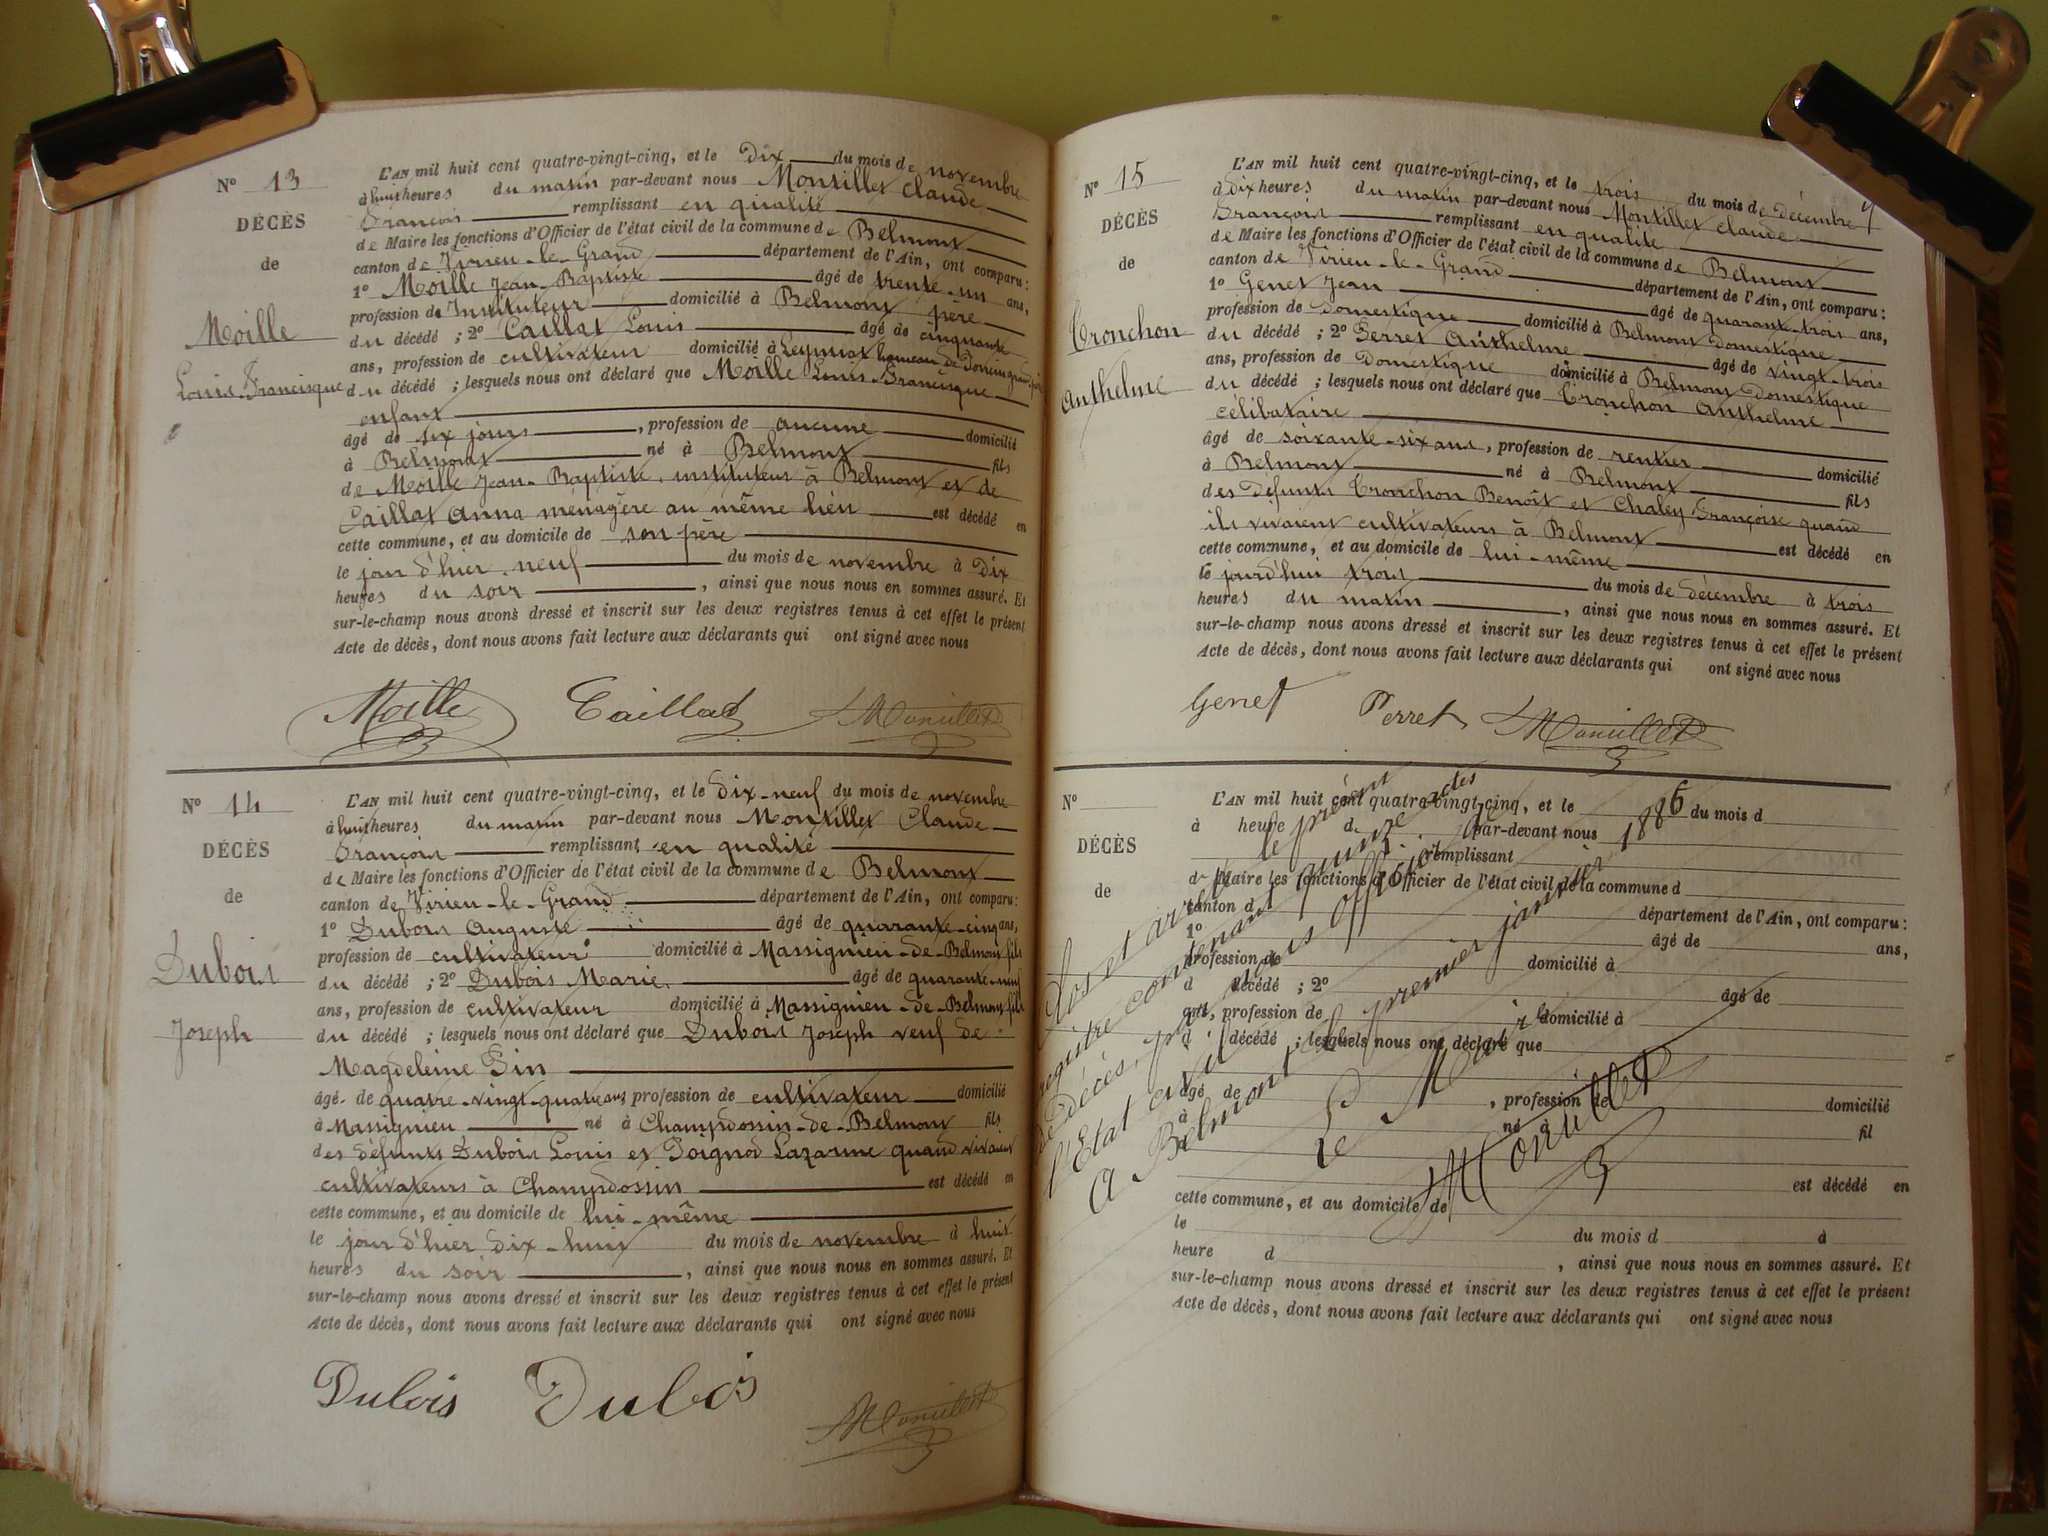 N° 13
DÉCÈS
de
Moille
Louis Francisque
L'AN mil huit cent quatre-vingt-cinq, et le Dix du mois de novembre
à huit heures du matin par-devant nous Montillet Claude
François remplissant en qualité
de Maire les fonctions d'Officier de l'état civil de la commune de Belmont
canton de Virieu-le-Grand département de l'Ain, ont comparu:
1° Moille Jean-Baptiste âgé de trente-un ans,
profession de Instituteur domicilié à Belmont père
du décédé ; 2° Caillat Louis âgé de cinquante
ans, profession de cultivateur domicilié à Leymiat hameau de
du décédé ; lesquels nous ont déclaré que Moille Louis Francisque
enfant
âgé de six jours, profession de aucune domicilié
à Belmont né à Belmont fils
de Moille Jean-Baptiste, instituteur à Belmont et de
Caillat Anna ménagère au même lieu est décédé en
cette commune, et au domicile de son père
le jour d'hier neuf du mois de novembre à Dix
heures du soir, ainsi que nous nous en sommes assuré. Et
sur-le-champ nous avons dressé et inscrit sur les deux registres tenus à cet effet le présent
Acte de décès, dont nous avons fait lecture aux déclarants qui ont signé avec nous
Moille Caillat Montillet
N° 14
DÉCÈS
de
Dubois
Joseph
L'AN mil huit cent quatre-vingt-cinq, et le Dix-neuf du mois de novembre
à huit heures du matin par-devant nous Montillet Claude
François remplissant en qualité
de Maire les fonctions d'Officier de l'état civil de la commune de Belmont
canton de Virieu-le-Grand département de l'Ain, ont comparu:
1° Dubois Auguste âgé de quarante-cinq ans,
profession de cultivateur domicilié à Massignieu-de-Belmont fils
du décédé ; 2° Dubois Marie âgé de quarante-neuf
ans, profession de cultivateur domicilié à Massignieu-de-Belmont fils
du décédé ; lesquels nous ont déclaré que Dubois Joseph veuf de
Magdeleine Pin
âgé de quatre-vingt-quatre ans profession de cultivateur domicilié
à Massignieu né à Champdossin-de-Belmont fils
des défunts Dubois Louis et Poignod Lazarine quand vivaient
cultivateurs à Champdossin est décédé en
cette commune, et au domicile de lui-même
le jour d'hier dix-huit du mois de novembre à huit
heures du soir, ainsi que nous nous en sommes assuré. Et
sur-le-champ nous avons dressé et inscrit sur les deux registres tenus à cet effet le présent
Acte de décès, dont nous avons fait lecture aux déclarants qui ont signé avec nous
Dubois Dubois Montillet
N° 15
DÉCÈS
de
Tronchon
Anthelme
L'AN mil huit cent quatre-vingt-cinq, et le trois du mois de décembre
à dix heures du matin par-devant nous Montillet Claude
François remplissant en qualité
de Maire les fonctions d'Officier de l'état civil de la commune de Belmont
canton de Virieu-le-Grand département de l'Ain, ont comparu:
1° Genet Jean âgé de quarante-trois ans,
profession de Domestique domicilié à Belmont Domestique
du décédé ; 2° Perret Anthelme âgé de vingt-trois
ans, profession de Domestique domicilié à Belmont Domestique
du décédé ; lesquels nous ont déclaré que Tronchon Anthelme
célibataire
âgé de soixante-six ans, profession de rentier domicilié
à Belmont né à Belmont fils
des défunts Tronchon Benoît et Chaley Françoise quand
ils vivaient cultivateurs à Belmont est décédé en
cette commune, et au domicile de lui-même
le jourd'hui trois du mois de décembre à trois
heures du matin, ainsi que nous nous en sommes assuré. Et
sur-le-champ nous avons dressé et inscrit sur les deux registres tenus à cet effet le présent
Acte de décès, dont nous avons fait lecture aux déclarants qui ont signé avec nous
Genet Perret Montillet
N°
DÉCÈS
de
L'AN mil huit cent quatre-vingt-cinq, et le du mois d
à heure d par-devant nous
remplissant
d Maire les fonctions d'Officier de l'état civil de la commune d
canton d département de l'Ain, ont comparu:
1° âgé de ans,
profession de domicilié à
d décédé ; 2° âgé de
ans, profession de domicilié à
d décédé ; lesquels nous ont déclaré que
âgé de , profession de domicilié
à né à fil
est décédé en
cette commune, et au domicile de
le du mois d à
heure d , ainsi que nous nous en sommes assuré. Et
sur-le-champ nous avons dressé et inscrit sur les deux registres tenus à cet effet le présent
Acte de décès, dont nous avons fait lecture aux déclarants qui ont signé avec nous
Clos et arrêté le présent
registre contenant quinze actes
de décès, par nous officier de
l'Etat civil
à Belmont le premier janvier 1886
Le Maire
Montillet